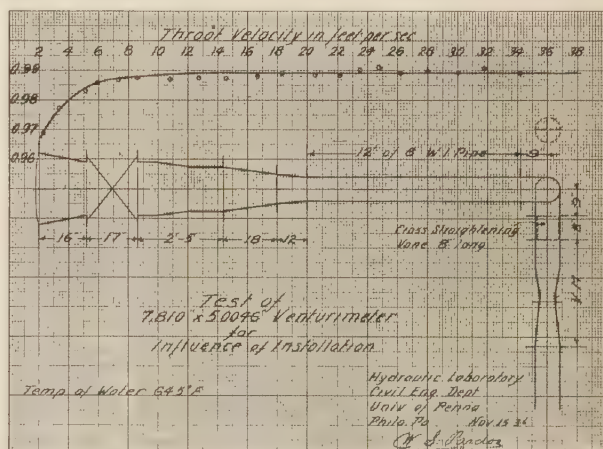 Throat Velocity in feet per sec
2 4 6 8 10 12 14 16 18 20 22 24 26 28 30 32 34 36 38
0.99
0.98
0.97
0.96
12' of 8" W.I. Pipe 9"
Cross Straightening
Vane 8" long
9"
8"
16" 17" 2'-5" 18" 12"
Test of
7.810" x 5.0046" Venturimeter
for
Influence of Installation
Temp of Water 64.5°F
Hydraulic Laboratory
Civil Eng. Dept
Univ of Penna
Phila. Pa. Nov. 15
W. S. Pardoe